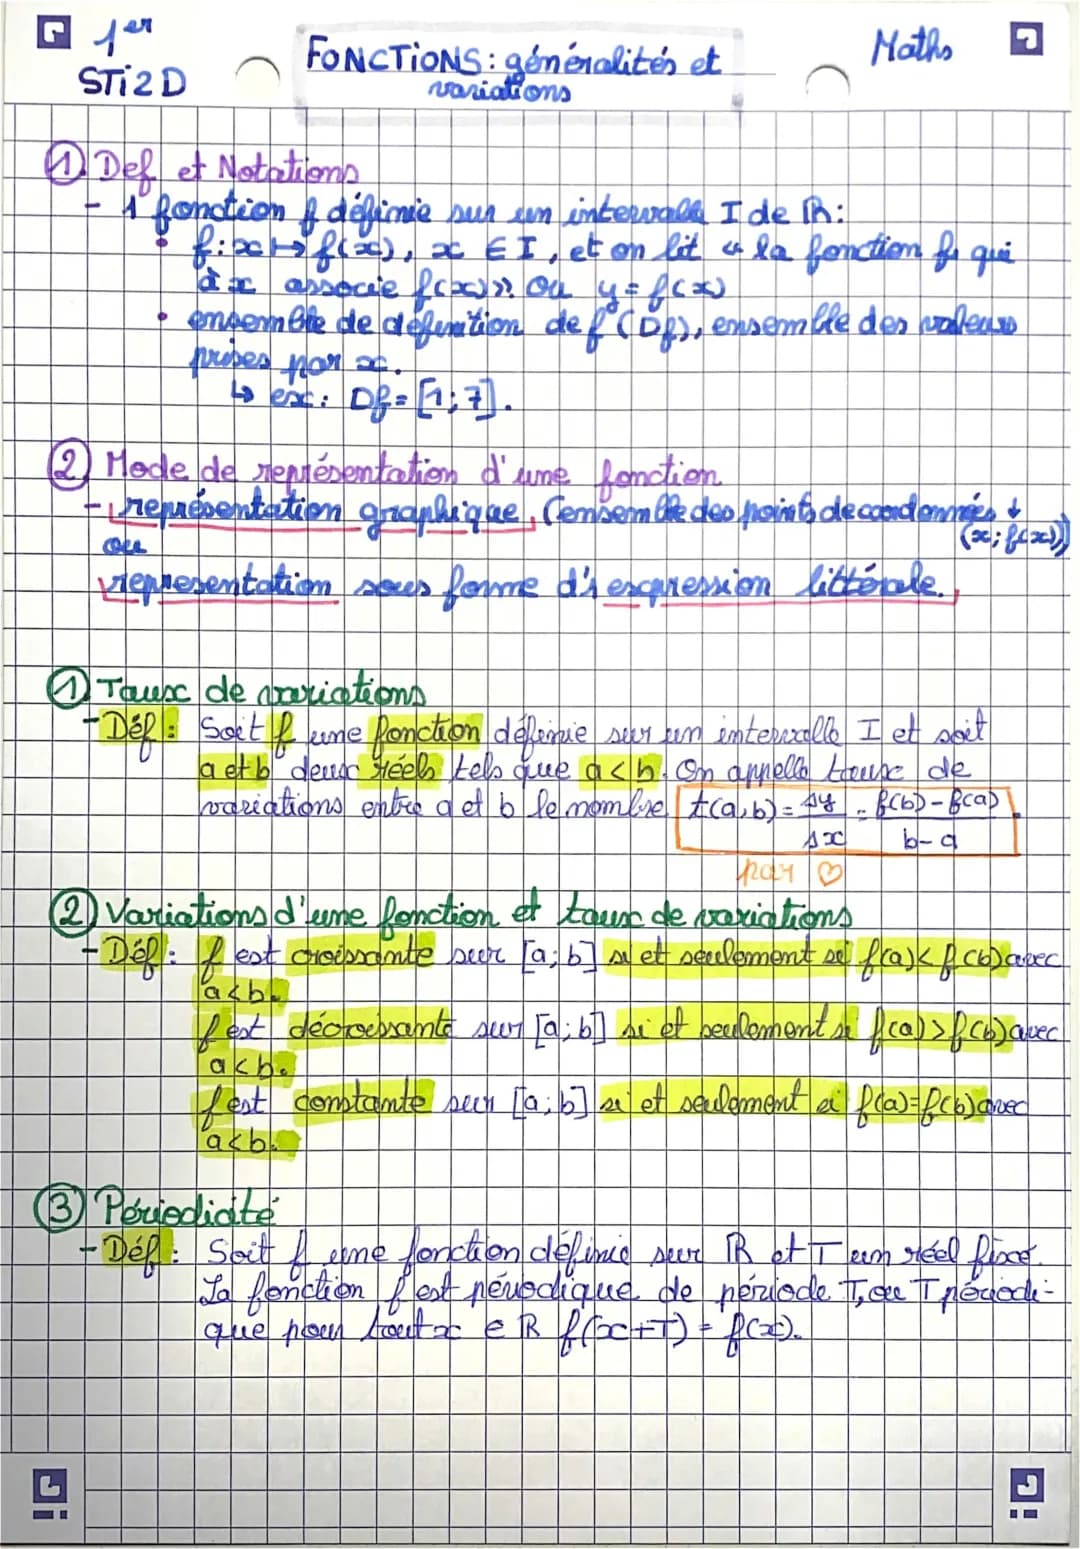 1er
STi2D
FONCTIONS : généralités et
variations
Maths
① Def et Notations
- 1 fonction f définie sur un intervalle I de ℝ :
• f : x ↦ f(x), x ∈ I, et on lit « la fonction f qui
à x associe f(x) » ou y = f(x)
• ensemble de définition de f (Df), ensemble des valeurs
prises par x.
↳ ex : Df = [1 ; 7].
② Mode de représentation d'une fonction
- représentation graphique, (ensemble des points de coordonnées ↓
(x ; f(x)))
ou
representation sous forme d'1 expression littérale.
① Taux de variations
- Déf : Soit f une fonction définie sur un intervalle I et soit
a et b deux réels tels que a < b. On appelle taux de
variations entre a et b le nombre t(a,b) = Δy/Δx = f(b) - f(a)/b - a
par ♡
② Variations d'une fonction et taux de variations
- Déf : f est croissante sur [a ; b] si et seulement si f(a) < f(b) avec
a < b.
f est décroissante sur [a ; b] si et seulement si f(a) > f(b) avec
a < b.
f est constante sur [a ; b] si et seulement si f(a) = f(b) avec
a < b.
③ Périodicité
- Déf : Soit f une fonction définie sur ℝ et T un réel fixé.
La fonction f est périodique de période T, ou T périodi-
que pour tout x ∈ ℝ f(x+T) = f(x).